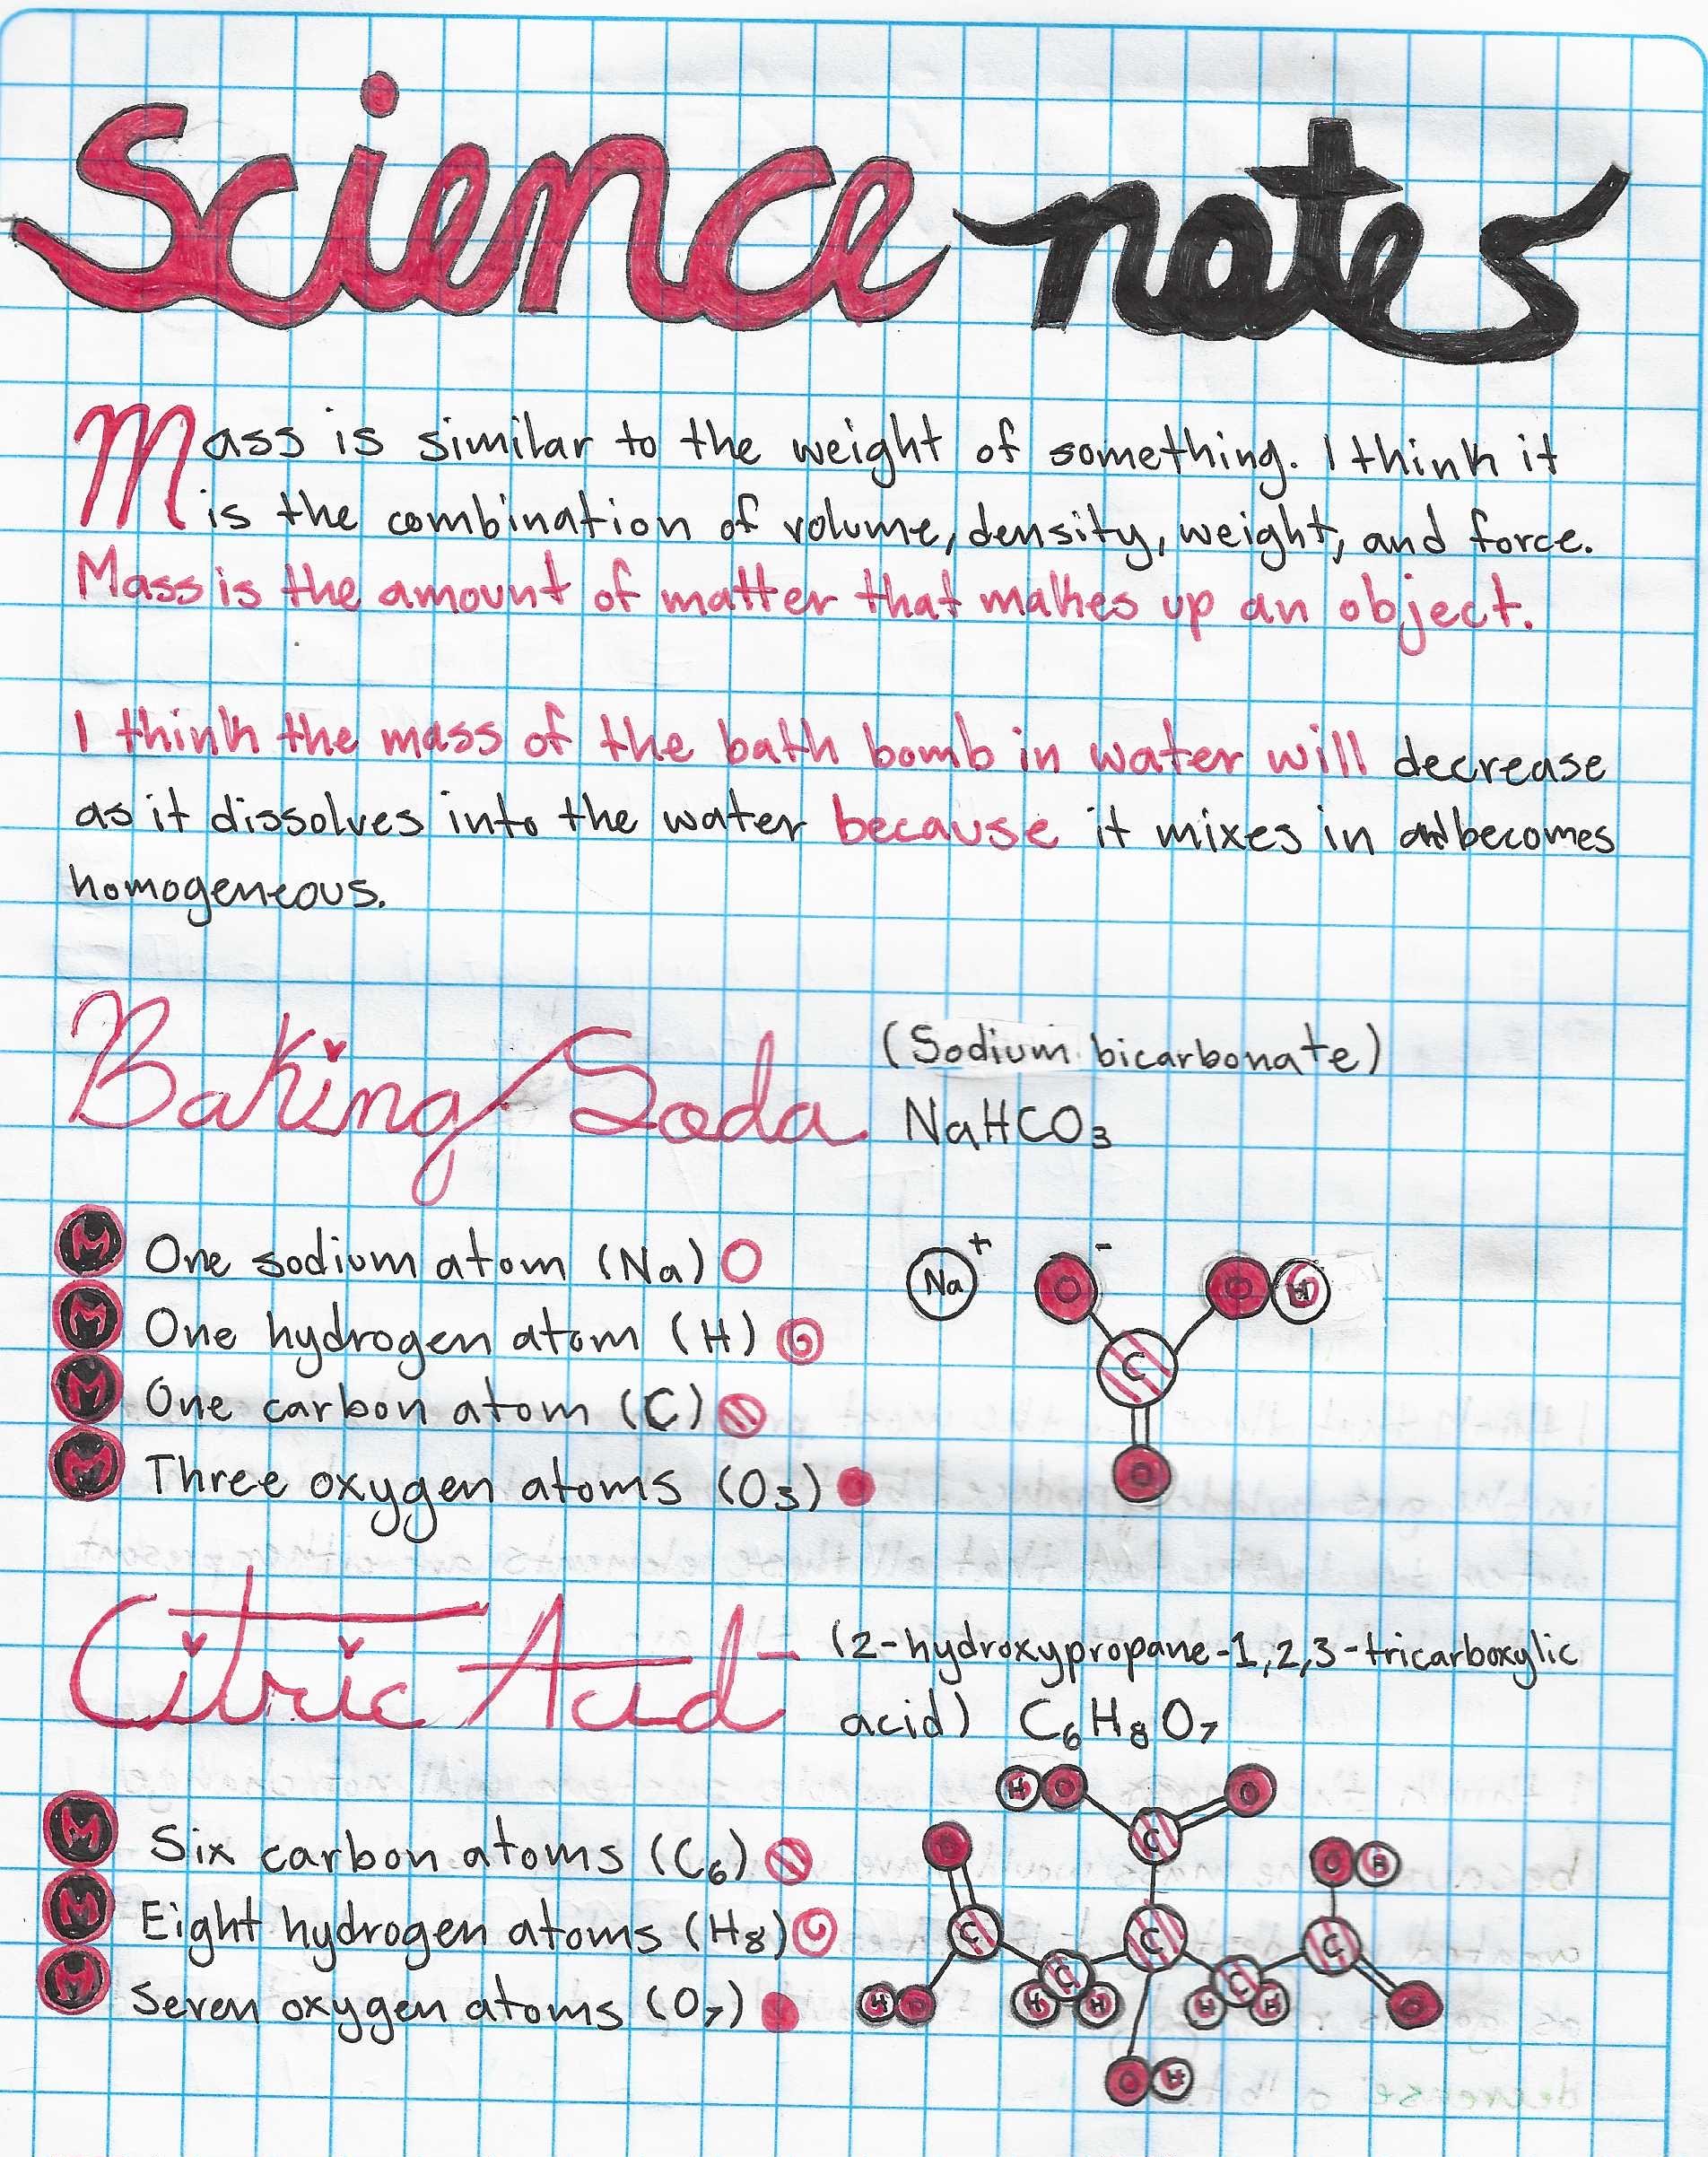 Science notes
Mass is similar to the weight of something. I think it
is the combination of volume, density, weight, and force.
Mass is the amount of matter that makes up an object.
I think the mass of the bath bomb in water will decrease
as it dissolves into the water because it mixes in and becomes
homogeneous.
Baking Soda (Sodium bicarbonate)
NaHCO₃
M One sodium atom (Na)
M One hydrogen atom (H)
M One carbon atom (C)
M Three oxygen atoms (O₃)
Na + O - O H
C
O
Citric Acid - (2-hydroxypropane-1,2,3-tricarboxylic
acid) C₆H₈O₇
M Six carbon atoms (C₆)
M Eight hydrogen atoms (H₈)
M Seven oxygen atoms (O₇)
H O O
O C O H
C C C
C C
H O H H H H O
O H